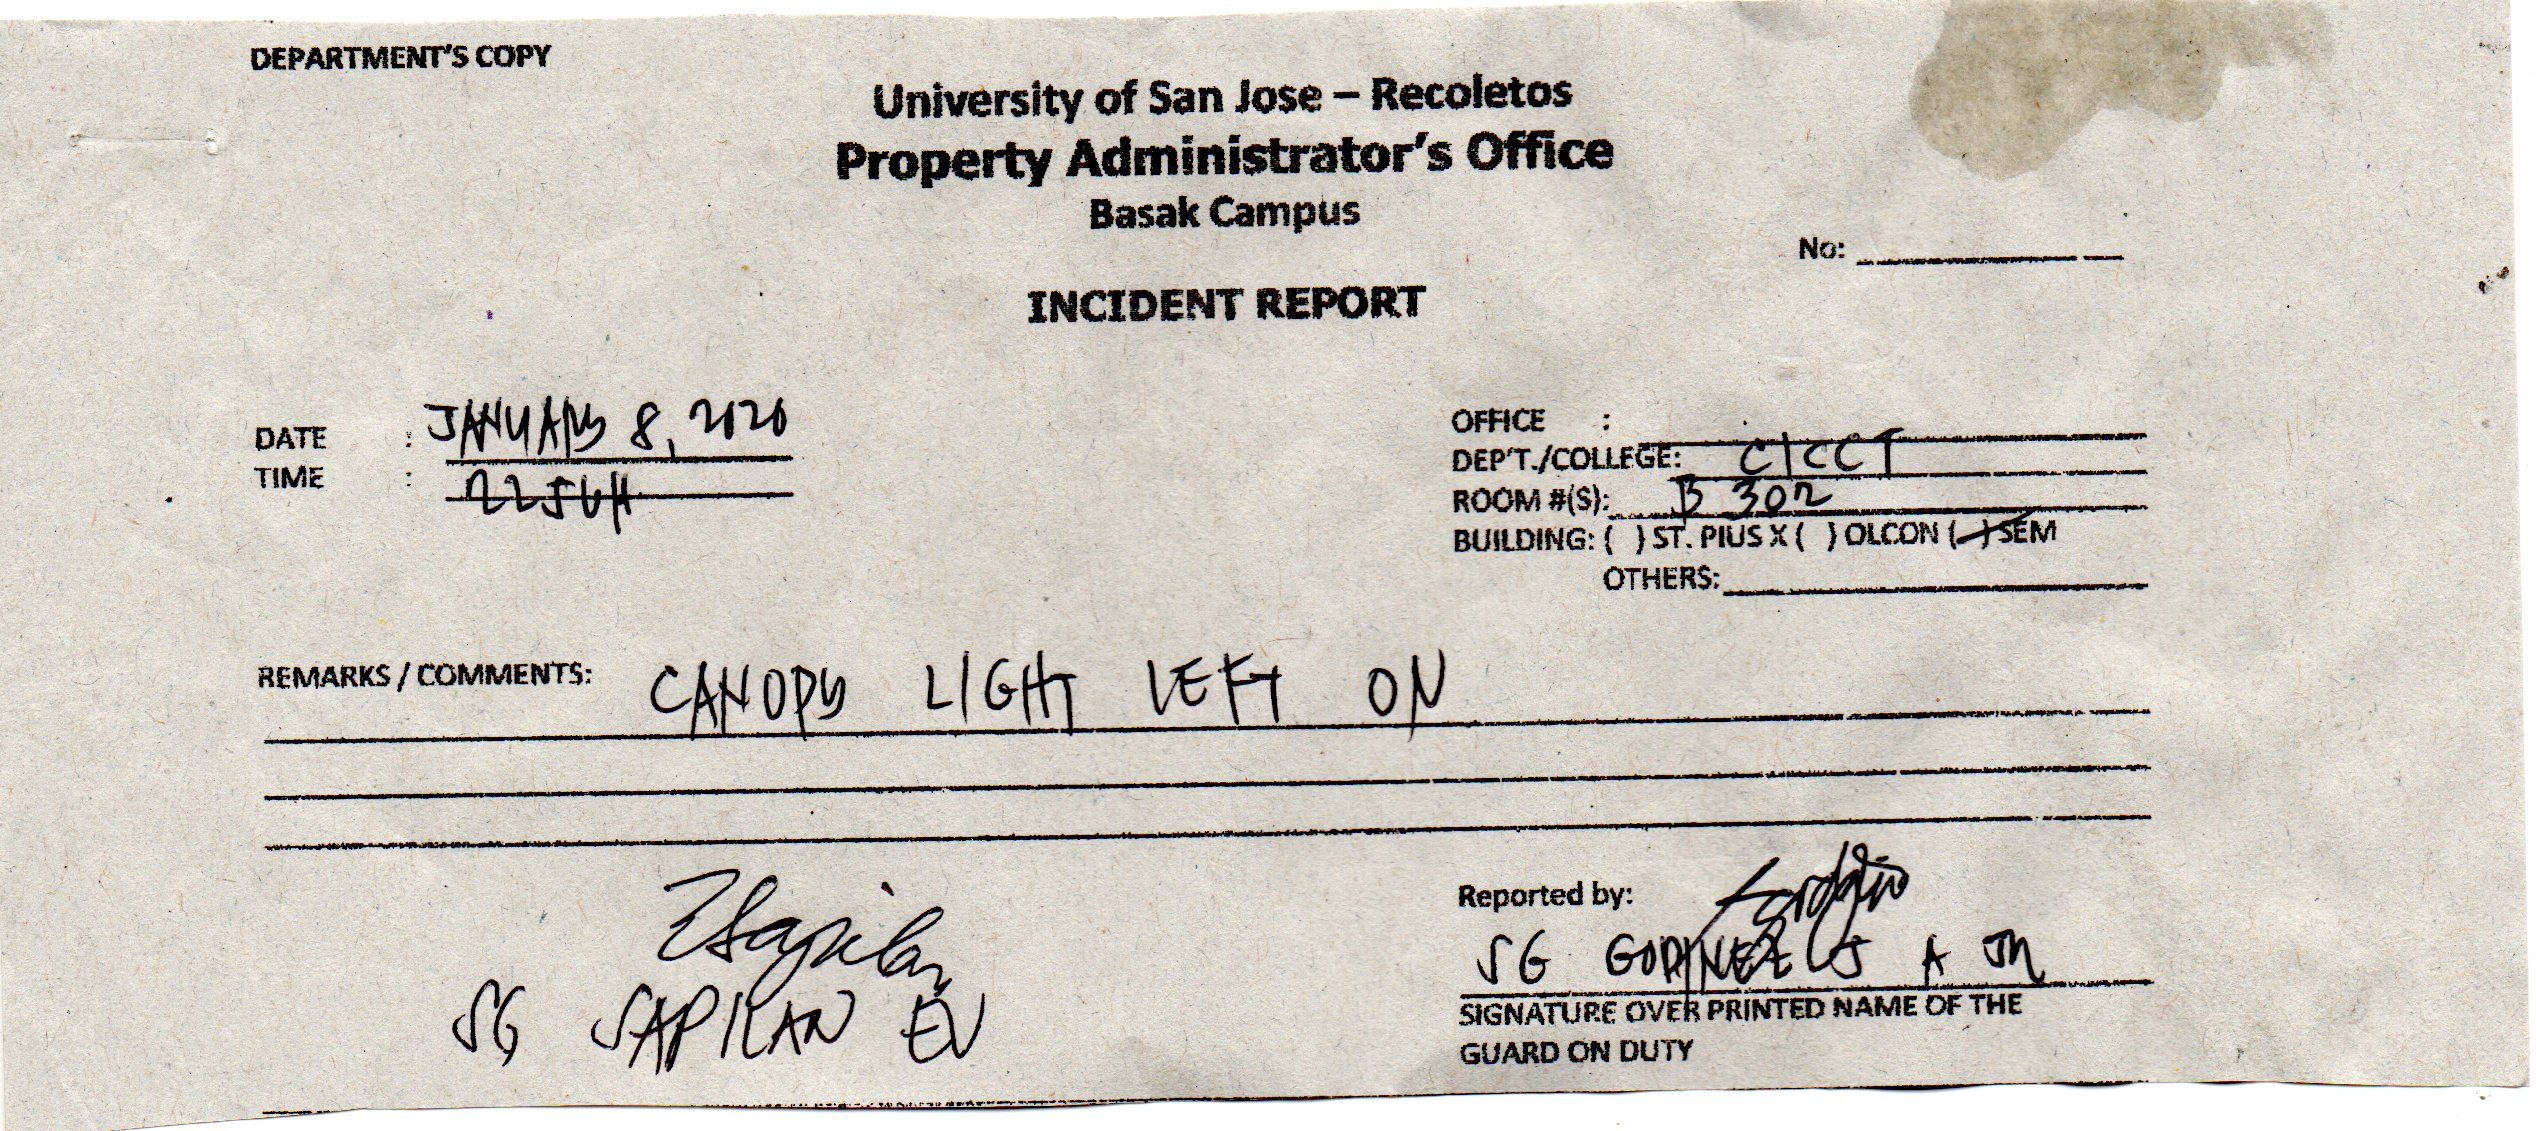 DEPARTMENT'S COPY
University of San Jose – Recoletos
Property Administrator's Office
Basak Campus
No:
INCIDENT REPORT
DATE : JANUARY 8, 2020
TIME :
OFFICE :
DEP'T./COLLEGE: CICCT
ROOM #(S): B 302
BUILDING: ( ) ST. PIUS X ( ) OLCON ( ) SEM
OTHERS:
REMARKS / COMMENTS: CANOPY LIGHT LEFT ON
Reported by:
SG GODINEZ A JR
SIGNATURE OVER PRINTED NAME OF THE
GUARD ON DUTY
SG SAPILAN EV